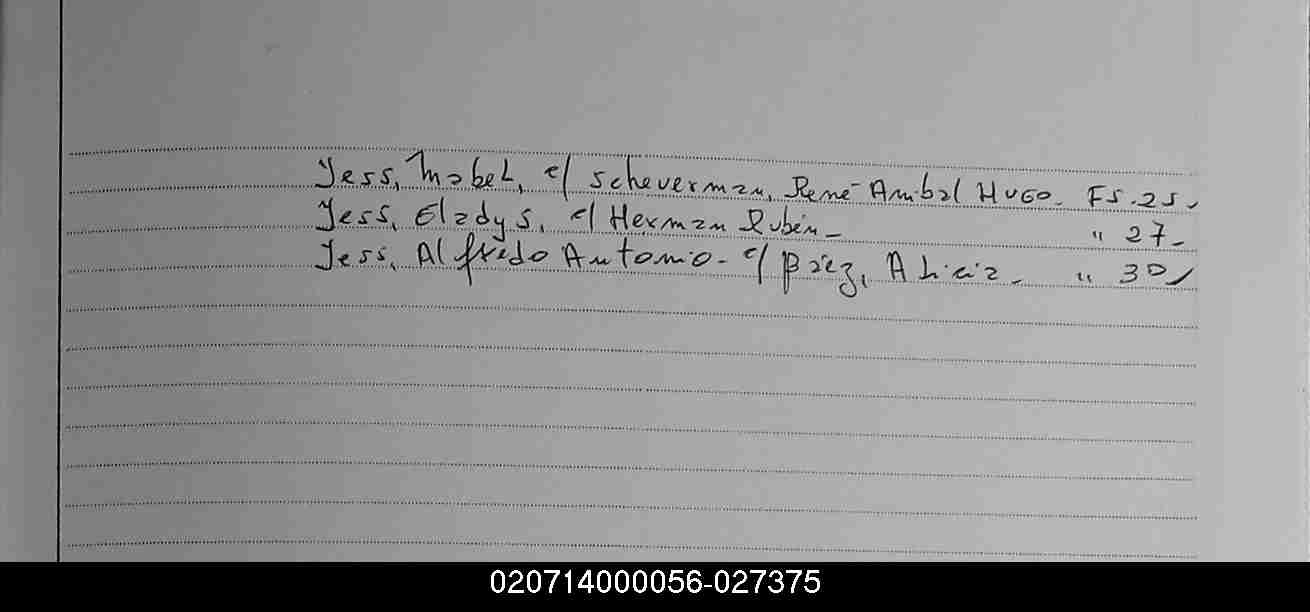 Yess, Mabel, c/ Scheverman, René Anibal Hugo. Fs. 25.
Yess, Eladys, c/ Herman Rubén - " 27 -
Yess, Alfredo Antonio - c/ Báez, Alicia - " 30
020714000056-027375